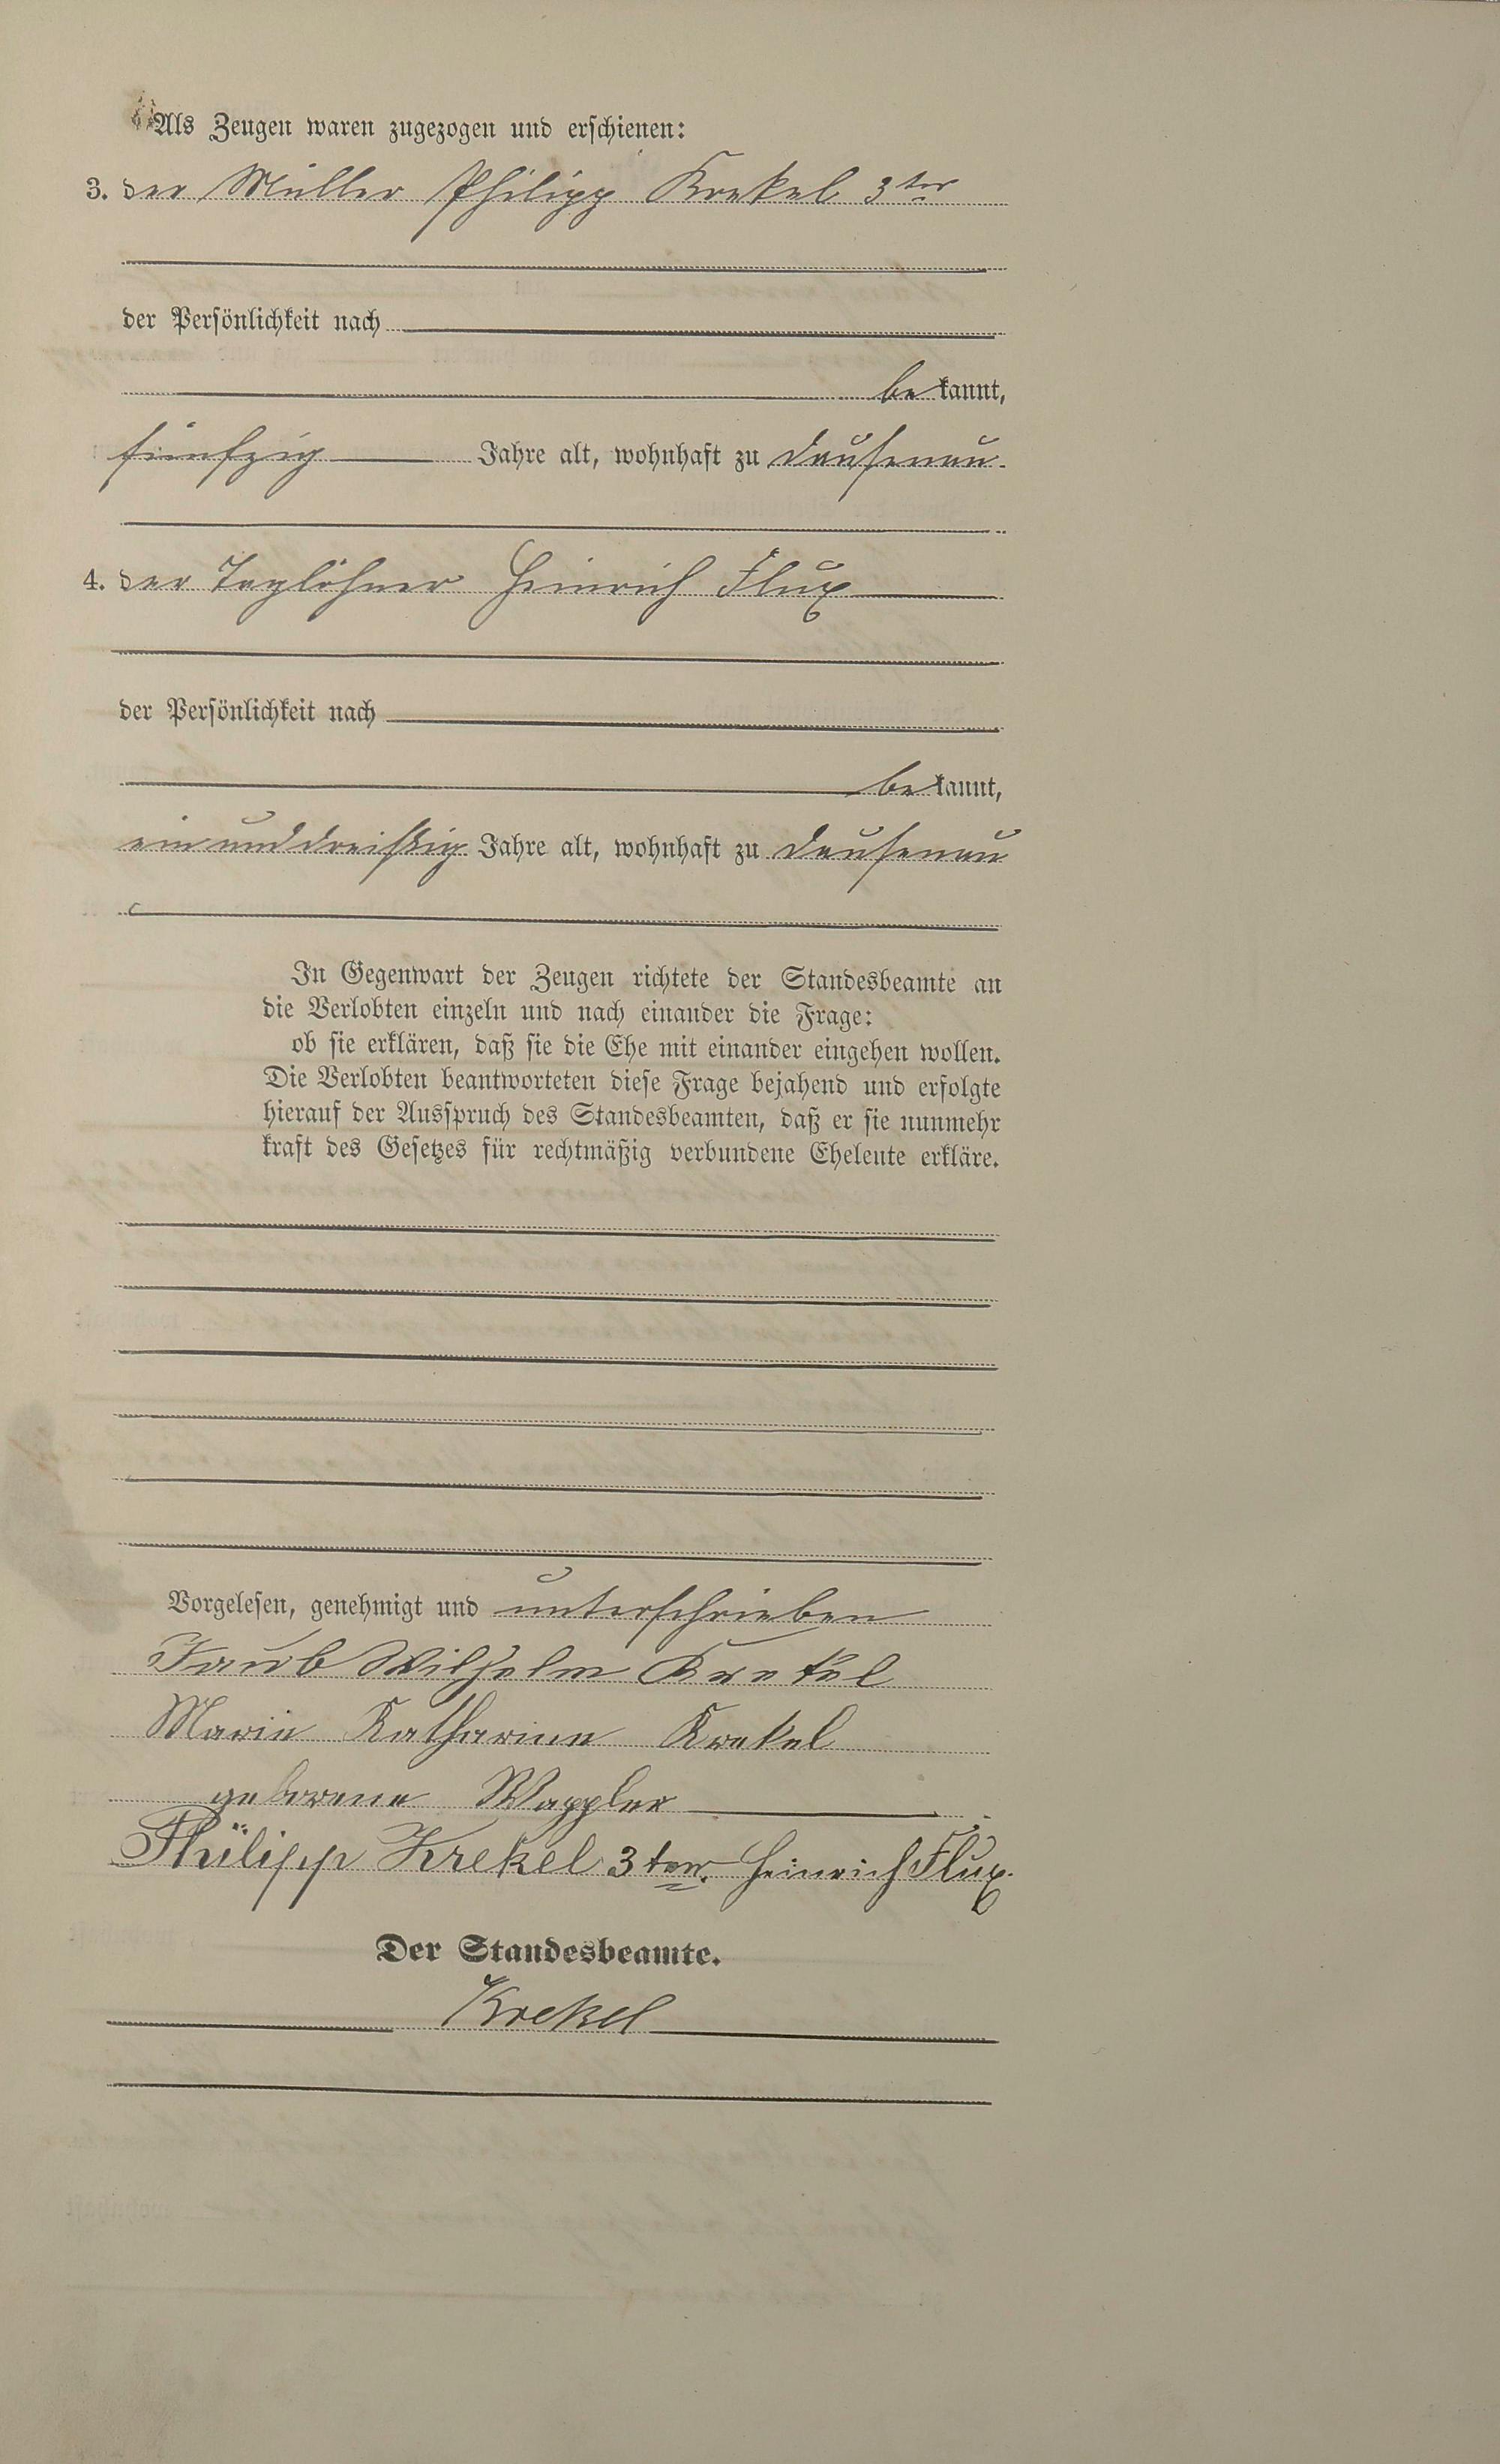 Als Zeugen waren zugezogen und erschienen:
3. der Müller Philipp Krekel 3ter
der Persönlichkeit nach
bekannt,
fünfzig Jahre alt, wohnhaft zu Dausenau
4. der Taglöhner Heinrich Flux
der Persönlichkeit nach
bekannt,
einunddreißig Jahre alt, wohnhaft zu Dausenau
In Gegenwart der Zeugen richtete der Standesbeamte an
die Verlobten einzeln und nach einander die Frage:
ob sie erklären, daß sie die Ehe mit einander eingehen wollen.
Die Verlobten beantworteten diese Frage bejahend und erfolgte
hierauf der Ausspruch des Standesbeamten, daß er sie nunmehr
kraft des Gesetzes für rechtmäßig verbundene Eheleute erkläre.
Vorgelesen, genehmigt und unterschrieben
Wilhelm Krekel
Marie Katharine Krekel
geborene Wappler
Philipp Krekel 3ter. Heinrich Flux.
Der Standesbeamte.
Krekel